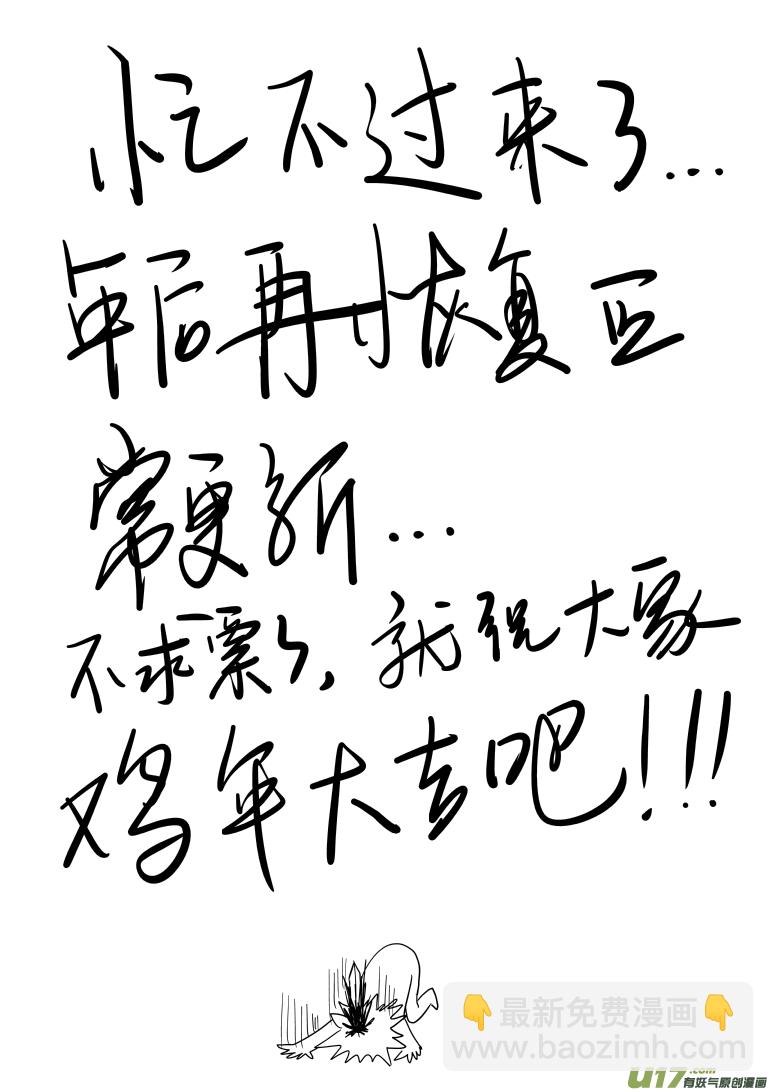 忙不过来了...
年后再恢复正
常更新...
不求票了,就祝大家
鸡年大吉吧!!!
👇最新免费漫画👇
www.baozimh.com
U17.com
有妖气原创漫画